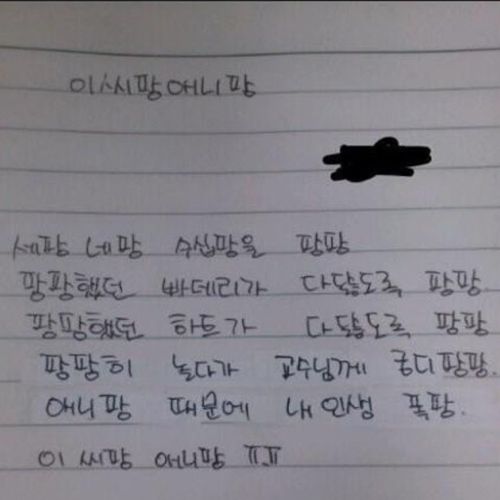 이씨팡애니팡
세팡 네팡 수십팡을 팡팡
팡팡했던 빠데리가 다닳도록 팡팡
팡팡했던 하트가 다닳도록 팡팡
팡팡히 놀다가 교수님께 궁디팡팡.
애니팡 때문에 내 인생 폭팡.
이 씨팡 애니팡 ㅠㅠ